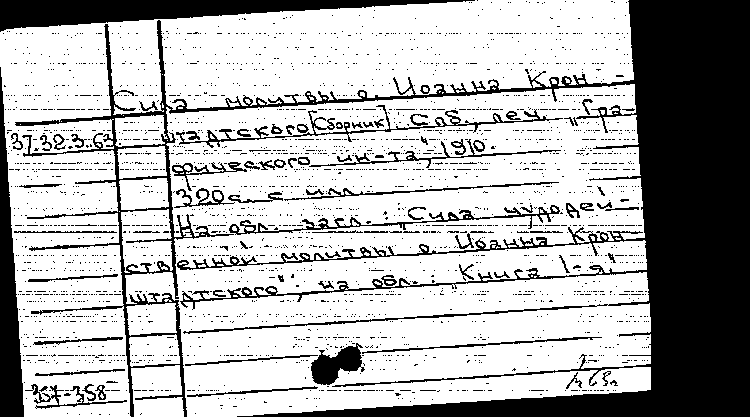 Сила молитвы о. Иоанна Крон-
37.32.3.63 штадтского [Сборник]. Спб., печ. „Гра-
фического ин-та", 1910.
320 с. с илл.
На обл. загл.: „Сила чудодей-
ственной молитвы о. Иоанна Крон-
штадтского"; на обл.: „Книга 1-я."
357-358